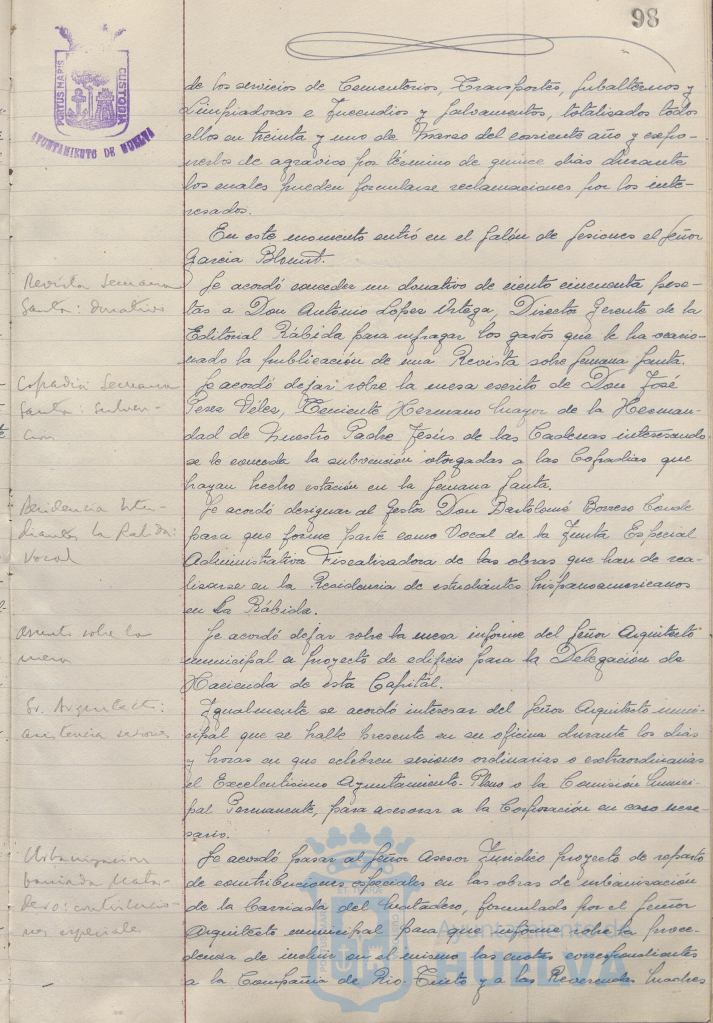 98
PORTUS MARIS CUSTODIA
AYUNTAMIENTO DE HUELVA
de los servicios de Cementerios, Transportes, Subalternos y
Limpiadoras e Incendios y Salvamentos, totalisados todo
ellos en treinta y uno de Marzo del corriente año y expo-
nerlos de agravios por término de quince dias durante
los cuales pueden formularse reclamaciones por los inte-
resados.
En este momento entró en el Salón de Sesiones el Señor
Garcia Blount.
Revista Semana
Santa: donativo
Se acordó conceder un donativo de ciento cincuenta pese-
tas a Don António Lopez Ortega, Director Gerente de la
Editorial Rábida para sufragar los gastos que le ha ocasio-
nado la publicación de una Revista sobre Semana Santa.
Cofradia Semana
Santa: subven-
cion
Se acordó dejar sobre la mesa escrito de Don José
Perez Vélez, Teniente Hermano Mayor de la Herman-
dad de Nuestro Padre Jesús de las Cadenas interesando
se le conceda la subvención otorgadas a las Cofradias que
hayan hecho estación en la Semana Santa.
Residencia Estu-
diantes La Rabida:
Vocal
Se acordó designar al Gestor Don Bartolomé Borrero Conde
para que forme parte como Vocal de la Junta Especial
Administrativa Fiscalizadora de las obras que han de rea-
lisarse en la Residencia de estudiantes hispanoamericanos
en La Rábida.
Asunto sobre la
mesa
Se acordó dejar sobre la mesa informe del Señor Arquitecto
municipal a proyecto de edificio para la Delegación de
Hacienda de esta Capital.
Sr. Arquitecto:
asistencia sesiones
Igualmente se acordó interesar del Señor Arquitecto muni-
cipal que se halle presente en su oficina durante los dias
y horas en que celebren sesiones ordinarias o extraordinarias
el Excelentísimo Ayuntamiento-Pleno o la Comisión Munici-
pal Permanente, para asesorar a la Corporación en caso nece-
sario.
Urbanizacion
barriada Mata-
dero: contribucio-
nes especiales
Se acordó pasar al Señor Asesor Juridico proyecto de reparto
de contribuciones especiales en las obras de urbanisación
de la Barriada del Matadero, formulado por el Señor
Arquitecto municipal para que informe sobre la proce-
dencia de incluir en el mismo las cuotas correspondientes
a la Compañia de Rio-Tinto y a las Reverendas Madres
Ayuntamiento de
HUELVA